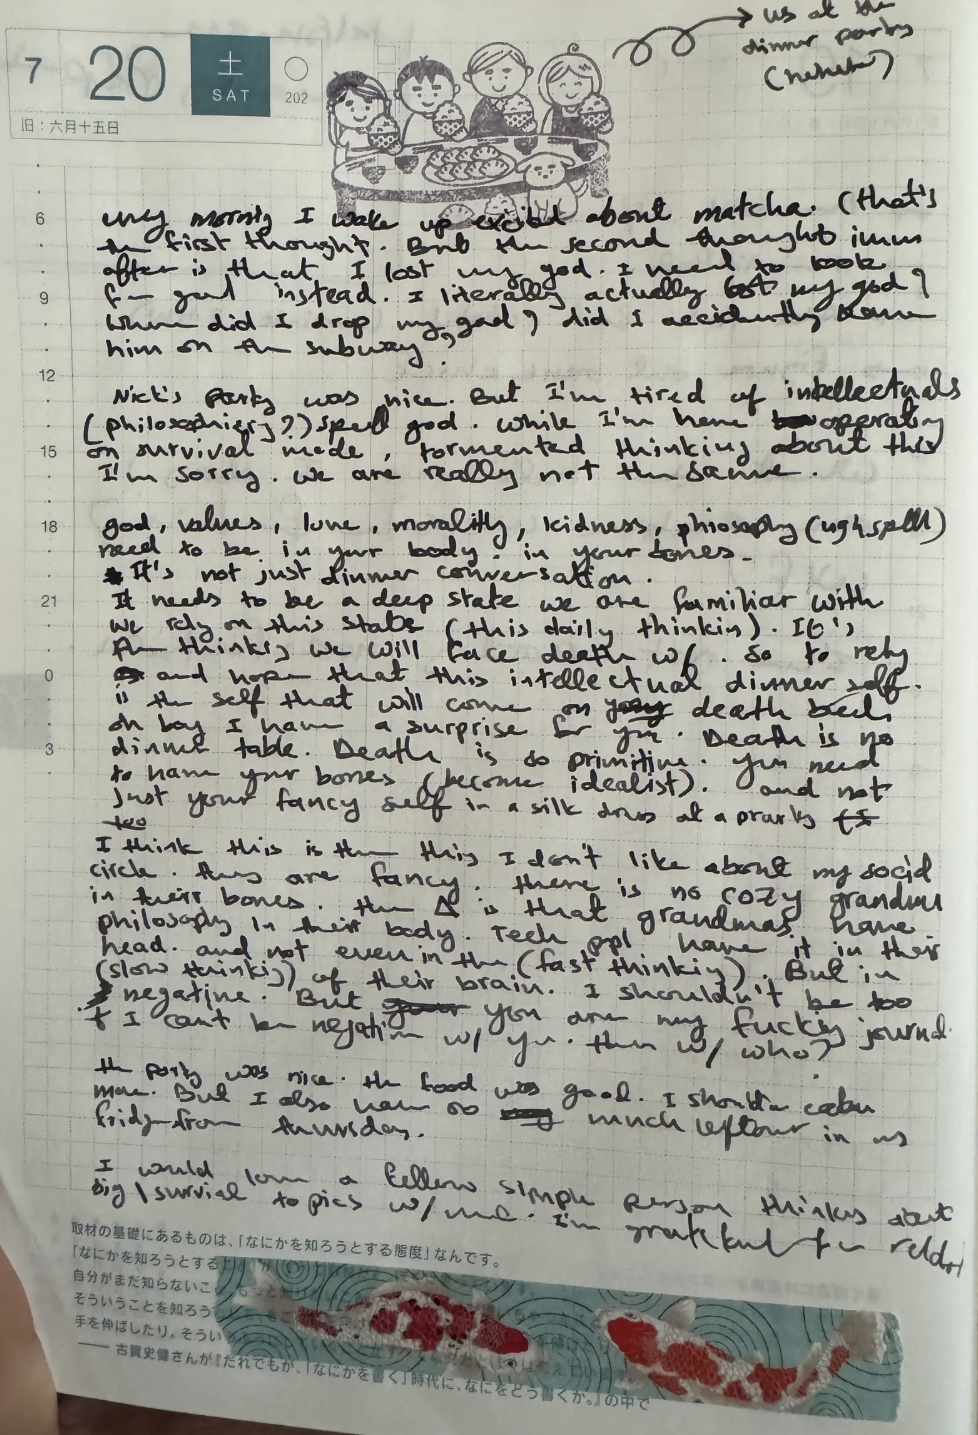 us at the
dinner party
(hehehe)
7 20 土
SAT
202
旧：六月十五日
6
9
12
15
18
21
0
3
every morning I wake up excited about matcha. (that's
the first thought. But the second thought imm
after is that I lost my god. I need to look
for god instead. I literally actually lost my god?
where did I drop my god? did I accidently leave
him on the subway?
Nick's party was nice. But I'm tired of intellectuals
(philosophiers?) spell god. while I'm here operating
on survival mode, tormented thinking about this
I'm sorry. we are really not the same.
god, values, love, morality, kidness, phiosophy (ugh spell)
need to be in your body. in your bones.
It's not just dinner conversation.
It needs to be a deep state we are familiar with
we rely on this state (this daily thinkin). It's
the thinking we will face death w/. So to rely
and hope that this intellectual dinner self.
is the self that will come on death bed.
oh boy I have a surprise for you. Death is no
dinner table. Death is so primitive. you need
to have your bones (become idealist). and not
just your fancy self in a silk dress at a praty
too
I think this is the this I don't like about my social
circle. they are fancy. there is no cozy grandma
in their bones. the Δ is that grandmas have
philosophy in their body. Tech ppl have it in their
head. and not even in the (fast thinkiy). But in
(slow thinkig) of their brain. I shouldn't be too
negative. But you are my fuckig journal
I can't be negative w/ you. then w/ who?
the party was nice. the food was good. I should
more. But I also have so much leftover in
fridge from thursday.
I would love a fellow simple person thinks about
big / survival topics w/ me. I'm grateful for
取材の基礎にあるものは、「なにかを知ろうとする態度」なんです。
「なにかを知ろうとする
自分がまだ知らないこ
そういうことを知ろう
手を伸ばしたり。そうい
—— 古賀史健さんが『だれでもが、「なにかを書く」時代に、なにをどう書くか。』の中で